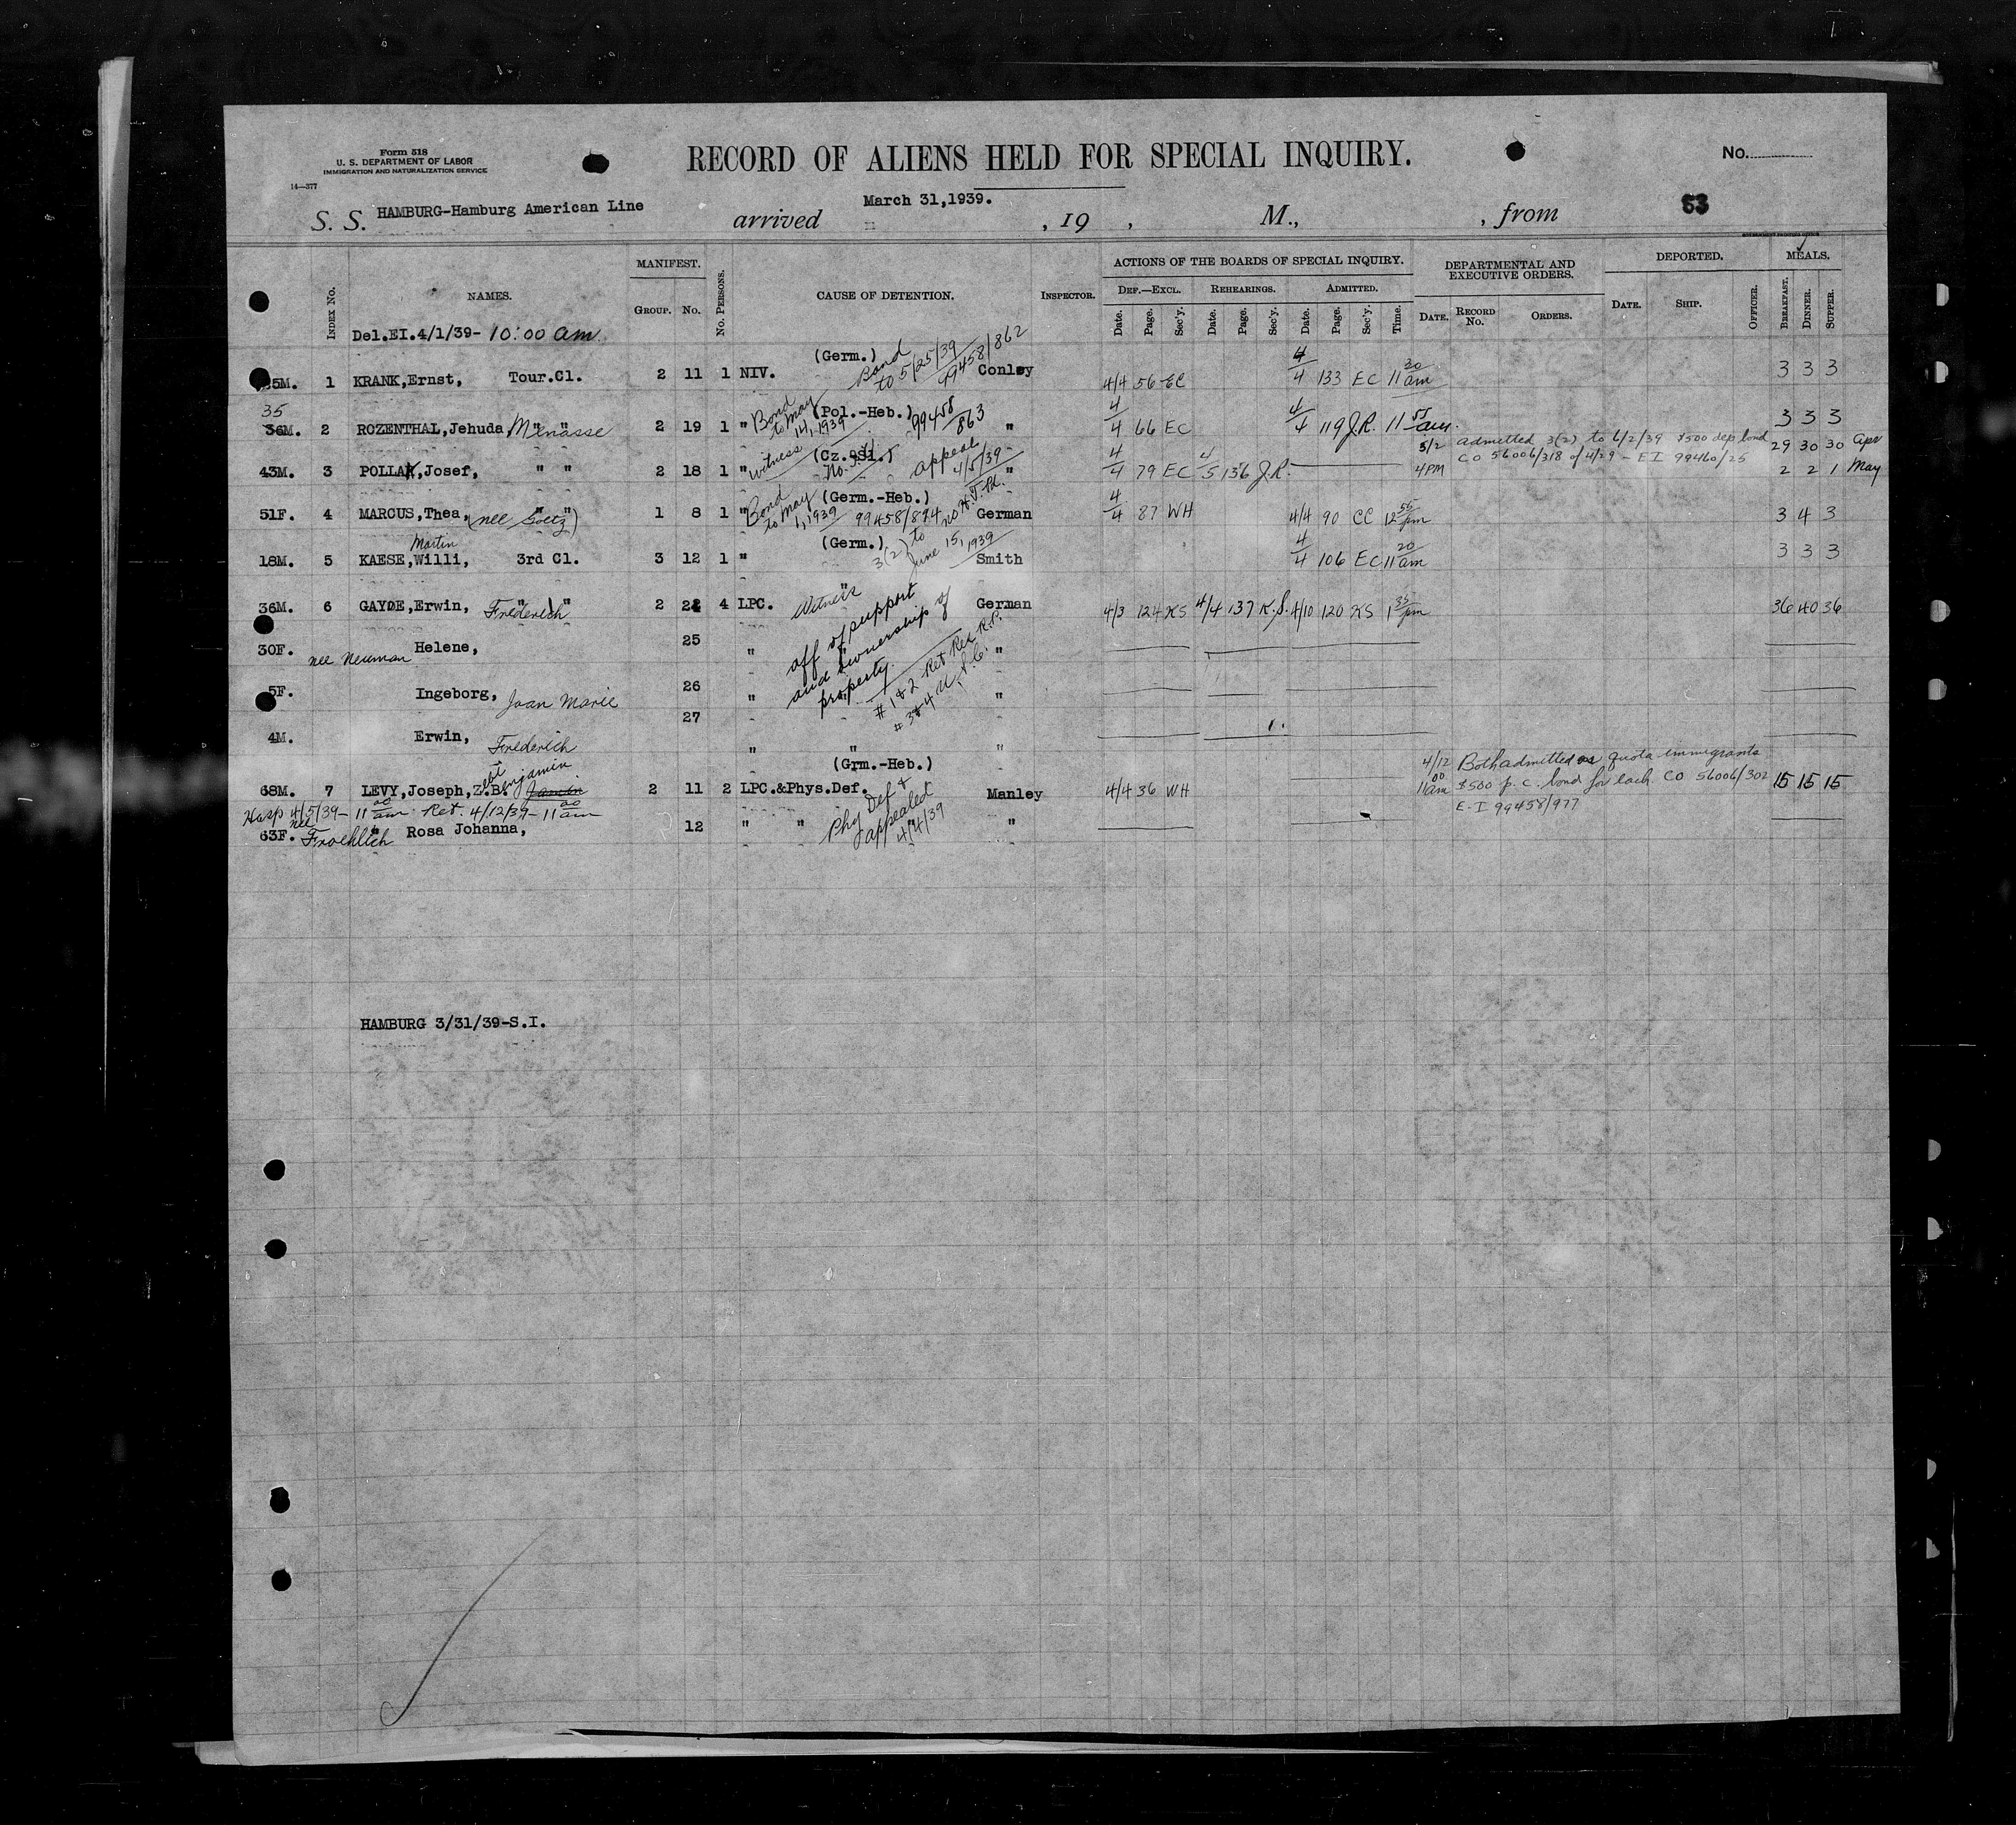 Form 518
U. S. DEPARTMENT OF LABOR
IMMIGRATION AND NATURALIZATION SERVICE
14—377
RECORD OF ALIENS HELD FOR SPECIAL INQUIRY.
No.
S. S. HAMBURG-Hamburg American Line arrived March 31,1939. , 19 , M., , from 53
INDEX No. NAMES. MANIFEST. GROUP. No. No. PERSONS. CAUSE OF DETENTION. INSPECTOR. ACTIONS OF THE BOARDS OF SPECIAL INQUIRY. DEF.—EXCL. Date. Page. Sec'y. REHEARINGS. Date. Page. Sec'y. ADMITTED. Date. Page. Sec'y. Time. DEPARTMENTAL AND EXECUTIVE ORDERS. DATE. RECORD No. ORDERS. DEPORTED. DATE. SHIP. OFFICER. MEALS. BREAKFAST. DINNER. SUPPER.
Del.EI.4/1/39- 10:00 am
35M. 1 KRANK,Ernst, Tour.Cl. 2 11 1 NIV. (Germ.) Bond to 5/25/39 99458/862 Conley 4/4 56 EC 4/4 133 EC 11 30 am 3 3 3
35
36M. 2 ROZENTHAL,Jehuda Menasse " " 2 19 1 " Bond to May 14,1939 (Pol.-Heb.) 99458/863 " 4/4 66 EC 4/4 119 J.R. 11 55 am. 3 3 3
43M. 3 POLLAK,Josef, " " 2 18 1 " Witness (Cz.-Sl.) appeal 4/5/39 " 4/4 79 EC 4/5 136 J.R. 5/2 4PM admitted 3(2) to 6/2/39 $500 dep bond CO 56006/318 of 4/29 - EI 99460/25 29 30 30 Apr
2 2 1 May
51F. 4 MARCUS,Thea, (nee Goetz) " " 1 8 1 " Bond to May 1,1939 (Germ.-Heb.) 99458/874 no H.T. Pd. German 4/4 87 WH 4/4 90 CC 12 55 pm 3 4 3
18M. 5 KAESE,Willi, Martin 3rd Cl. 3 12 1 " (Germ.) 3(2) to June 15, 1939 Smith 4/4 106 EC 11 20 am 3 3 3
36M. 6 GAYDE,Erwin, Frederich " " 2 24 4 LPC. " Witness German 4/3 124 KS 4/4 137 K.S. 4/10 120 KS 1 35 pm 36 40 36
aff of support and ownership of property.
30F. nee Neuman Helene, 25 " "
# 1 & 2 Ret Res R.P.
# 3 & 4 U.S.C.
5F. Ingeborg, Joan Marie 26 " "
4M. Erwin, Frederich 27 " " "
68M. 7 LEVY,Joseph,Z.B. Benjamin 2 11 2 LPC.&Phys.Def. (Grm.-Heb.) Manley 4/4 36 WH 4/12 11 00 am Both admitted as quota immigrants $500 p.c. bond for each CO 56006/302 E.I 99458/977 15 15 15
Hosp 4/5/39 - 11 00 am Ret. 4/12/39 - 11 00 am
63F. nee Froehlich " Rosa Johanna, 12 " " Phy Def & appealed 4/4/39 "
HAMBURG 3/31/39-S.I.